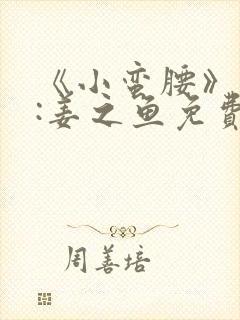 《小蛮腰》
:姜之鱼免費
周善培